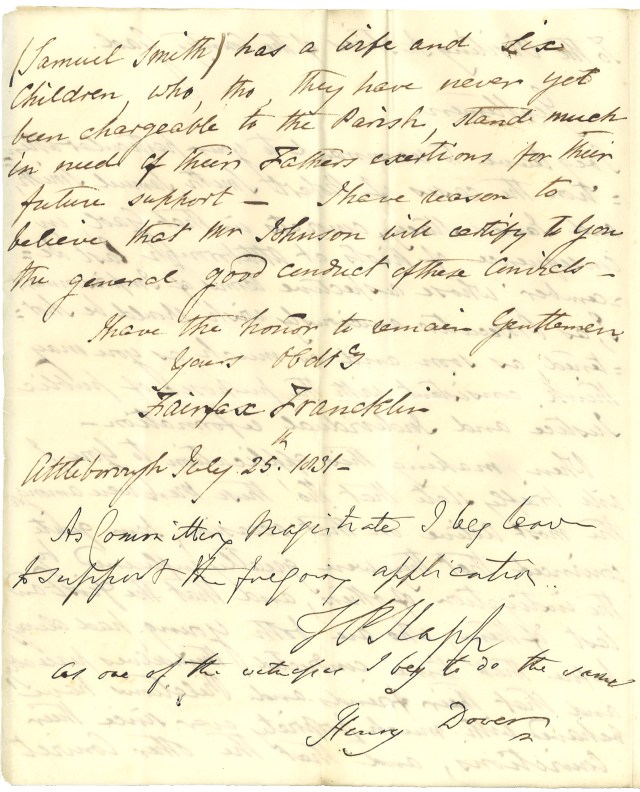 (Samuel Smith) has a Wife and Six
Children, who, tho, they have never yet
been chargeable to the Parish, stand much
in need of their Fathers exertions for their
future support — I have reason to
believe that Mr Johnson will certify to You
the general good conduct of these Convicts —
I have the honor to remain Gentlemen
Yours Obdtly
Fairfax Francklin
Attleborough July 25th. 1831 —
As Committing Magistrate I beg leave
to support the foregoing application.
as one of the witnesses I beg to do the same
Henry Dover